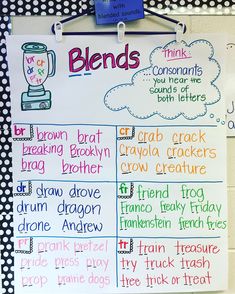 with
blended sounds
Blends
Think:
...Consonants
you hear the
sounds of
both letters
br
cr
dr
fr
br
brown brat
breaking Brooklyn
brag brother
cr
crab crack
Crayola crackers
crow creature
dr
draw drove
drum dragon
drone Andrew
fr
friend frog
Franco freaky Friday
Frankenstein french fries
pr
prank pretzel
pride press pray
prop prairie dogs
tr
train treasure
try truck trash
tree trick or treat